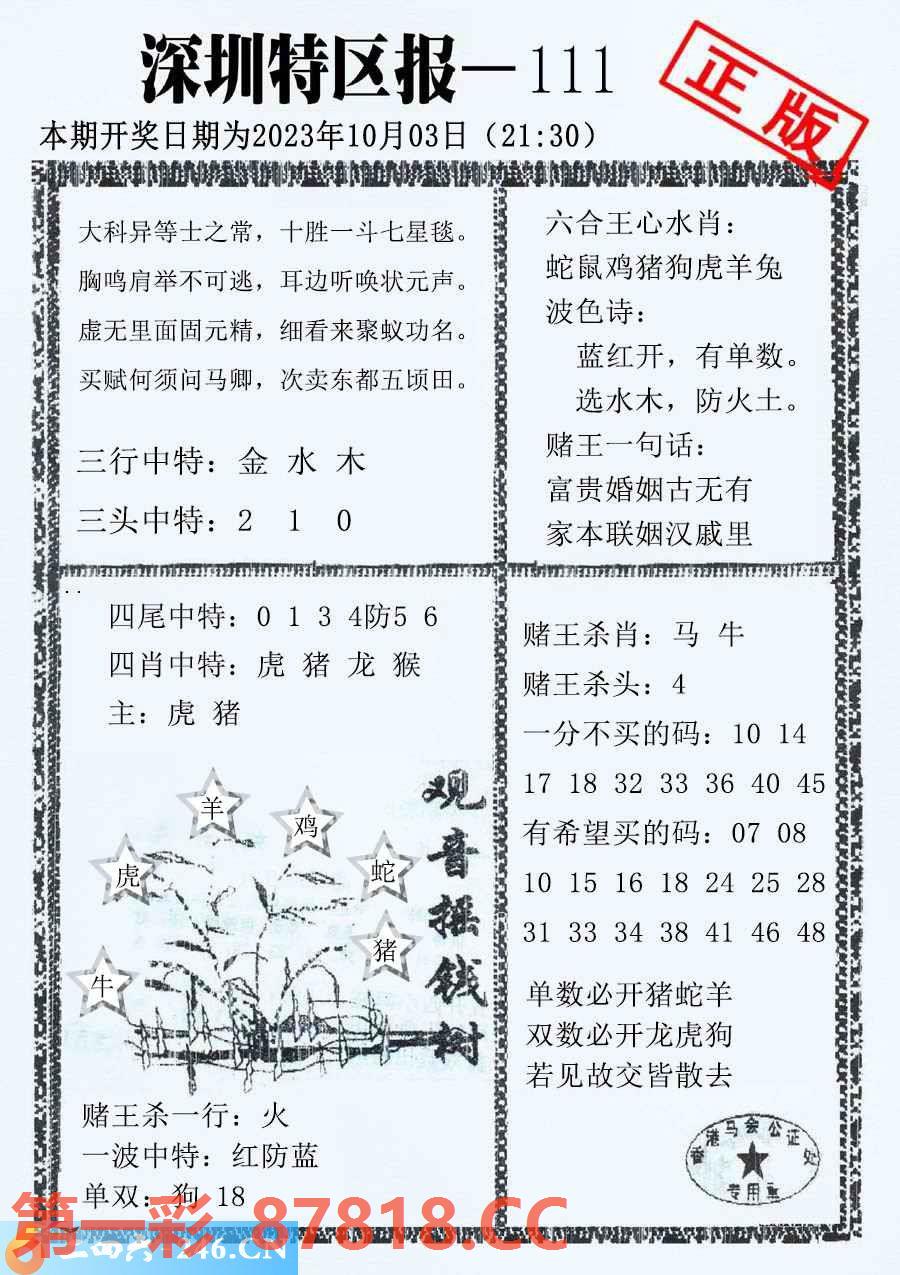 深圳特区报—111
正版
本期开奖日期为2023年10月03日（21:30）
大科异等士之常，十胜一斗七星毯。
胸鸣肩举不可逃，耳边听唤状元声。
虚无里面固元精，细看来聚蚁功名。
买赋何须问马卿，次卖东都五顷田。
三行中特：金 水 木
三头中特：2 1 0
六合王心水肖：
蛇鼠鸡猪狗虎羊兔
波色诗：
蓝红开，有单数。
选水木，防火土。
赌王一句话：
富贵婚姻古无有
家本联姻汉戚里
四尾中特：0 1 3 4防5 6
四肖中特：虎 猪 龙 猴
主：虎 猪
观音摇钱树
羊
鸡
虎
蛇
猪
牛
赌王杀一行：火
一波中特：红防蓝
单双：狗 18
赌王杀肖：马 牛
赌王杀头：4
一分不买的码：10 14
17 18 32 33 36 40 45
有希望买的码：07 08
10 15 16 18 24 25 28
31 33 34 38 41 46 48
单数必开猪蛇羊
双数必开龙虎狗
若见故交皆散去
香港马会公证处
专用
第一彩 87818.CC
246.CN